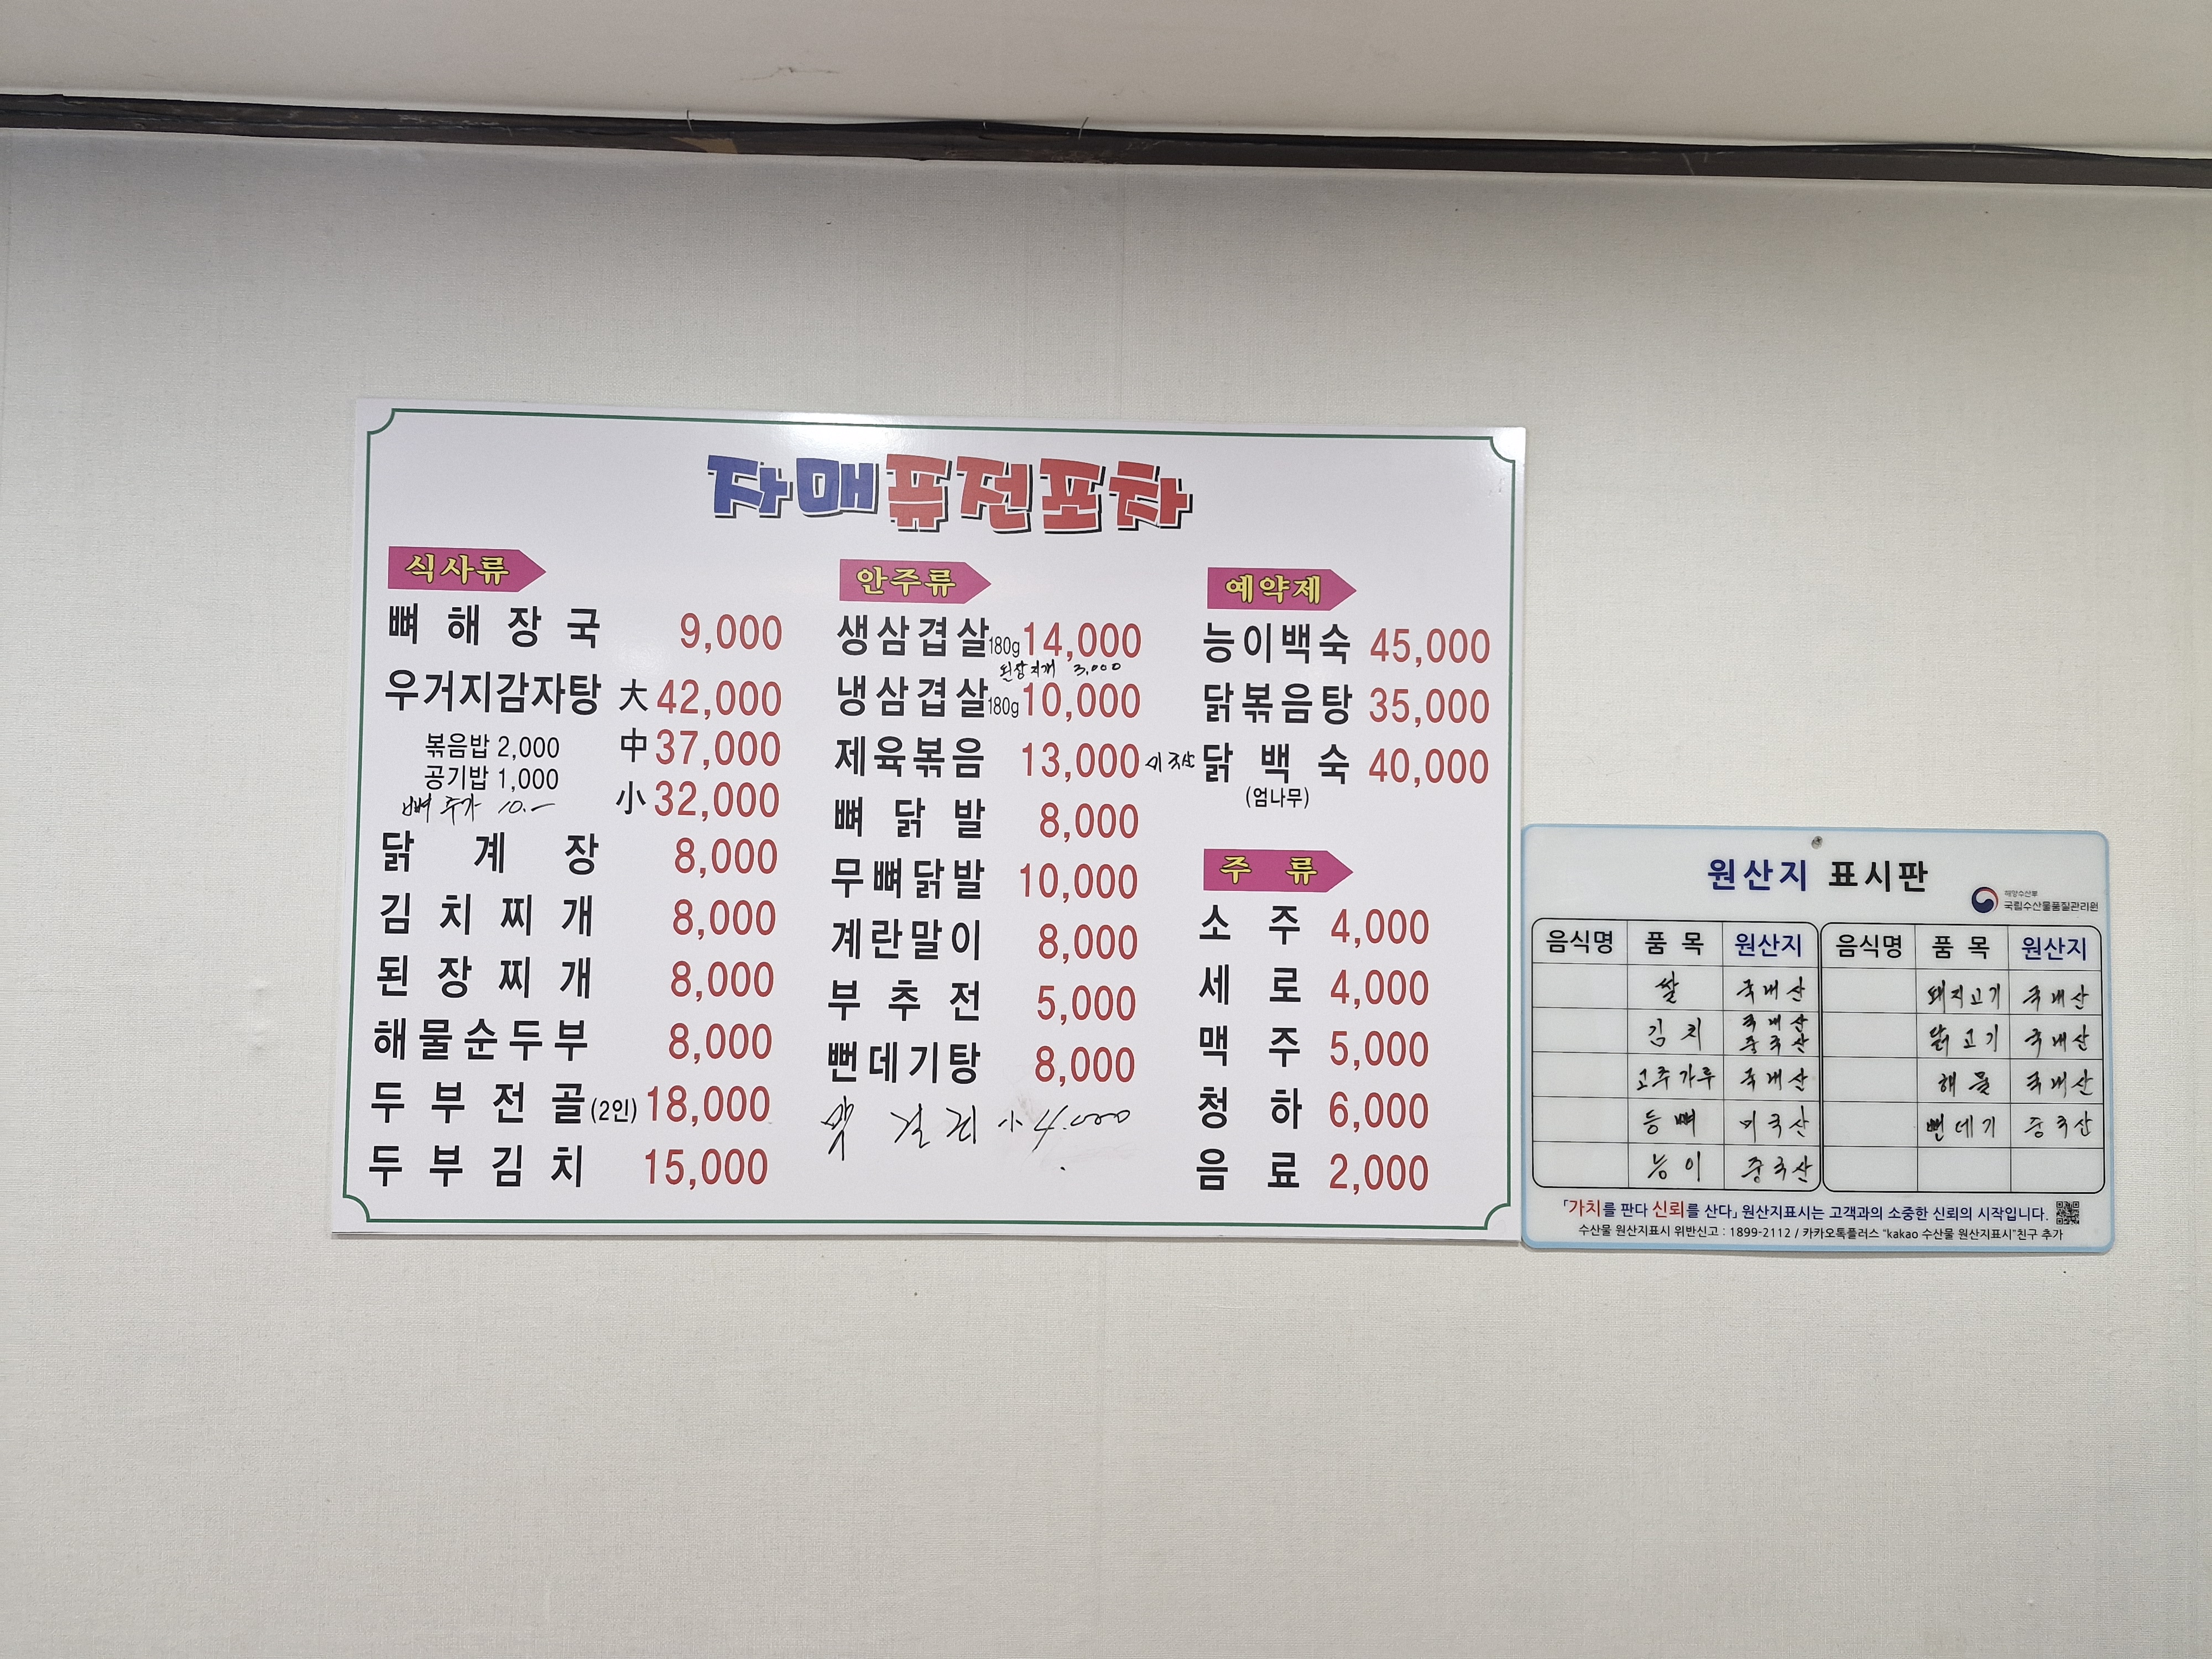 자매퓨전포차
식사류
뼈해장국 9,000
우거지감자탕 大 42,000
中 37,000
小 32,000
볶음밥 2,000
공기밥 1,000
뼈 추가 10.-
닭계장 8,000
김치찌개 8,000
된장찌개 8,000
해물순두부 8,000
두부전골(2인) 18,000
두부김치 15,000
안주류
생삼겹살 180g 14,000
된장찌개 3,000
냉삼겹살 180g 10,000
제육볶음 13,000 미국산
뼈닭발 8,000
무뼈닭발 10,000
계란말이 8,000
부추전 5,000
뻔데기탕 8,000
小 4.000
예약제
능이백숙 45,000
닭볶음탕 35,000
닭백숙 40,000
(엄나무)
주류
소주 4,000
세로 4,000
맥주 5,000
청하 6,000
음료 2,000
원산지 표시판
해양수산부
국립수산물품질관리원
음식명 품목 원산지 음식명 품목 원산지
쌀 국내산 돼지고기 국내산
김치 국내산 중국산 닭고기 국내산
고추가루 국내산 해물 국내산
등뼈 미국산 뻔데기 중국산
능이 중국산
「가치를 판다 신뢰를 산다」 원산지표시는 고객과의 소중한 신뢰의 시작입니다.
수산물 원산지표시 위반신고 : 1899-2112 / 카카오톡플러스 "kakao 수산물 원산지표시"친구 추가